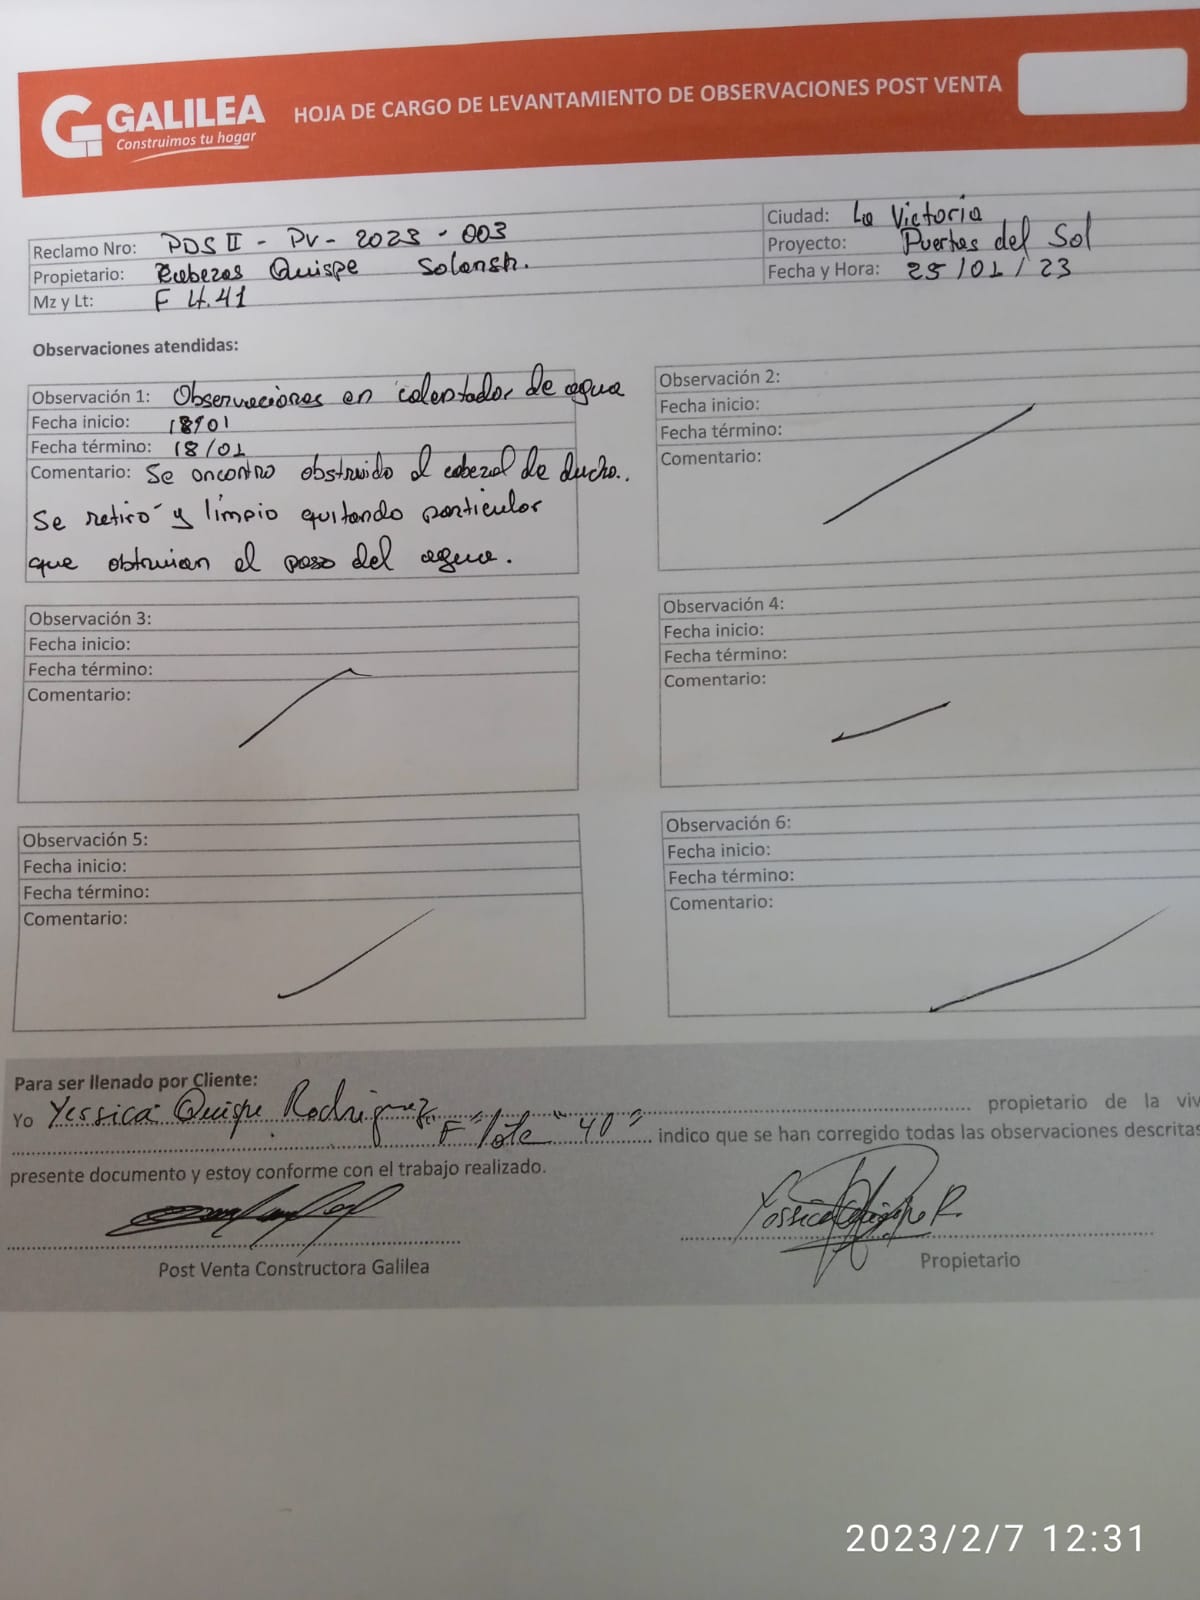 GALILEA
Construimos tu hogar
HOJA DE CARGO DE LEVANTAMIENTO DE OBSERVACIONES POST VENTA
Reclamo Nro: PDS II - PV - 2023 - 003
Propietario: Quispe
Mz y Lt: F Lt. 41
Ciudad: La Victoria
Proyecto: Puertas del Sol
Fecha y Hora: 25/01/23
Observaciones atendidas:
Observación 1: Observaciones en calentador de agua
Fecha inicio: 18/01
Fecha término: 18/01
Comentario: Se encontro obstruido el cabezal de ducha.
Se retiro y limpio quitando particular
que obtruian el paso del agua.
Observación 2:
Fecha inicio:
Fecha término:
Comentario:
Observación 3:
Fecha inicio:
Fecha término:
Comentario:
Observación 4:
Fecha inicio:
Fecha término:
Comentario:
Observación 5:
Fecha inicio:
Fecha término:
Comentario:
Observación 6:
Fecha inicio:
Fecha término:
Comentario:
Para ser llenado por Cliente:
Yo Yessica Quispe Rodriguez propietario de la viv
F "lote "40" indico que se han corregido todas las observaciones descritas
presente documento y estoy conforme con el trabajo realizado.
Yessica Quispe R.
Post Venta Constructora Galilea
Propietario
2023/2/7 12:31